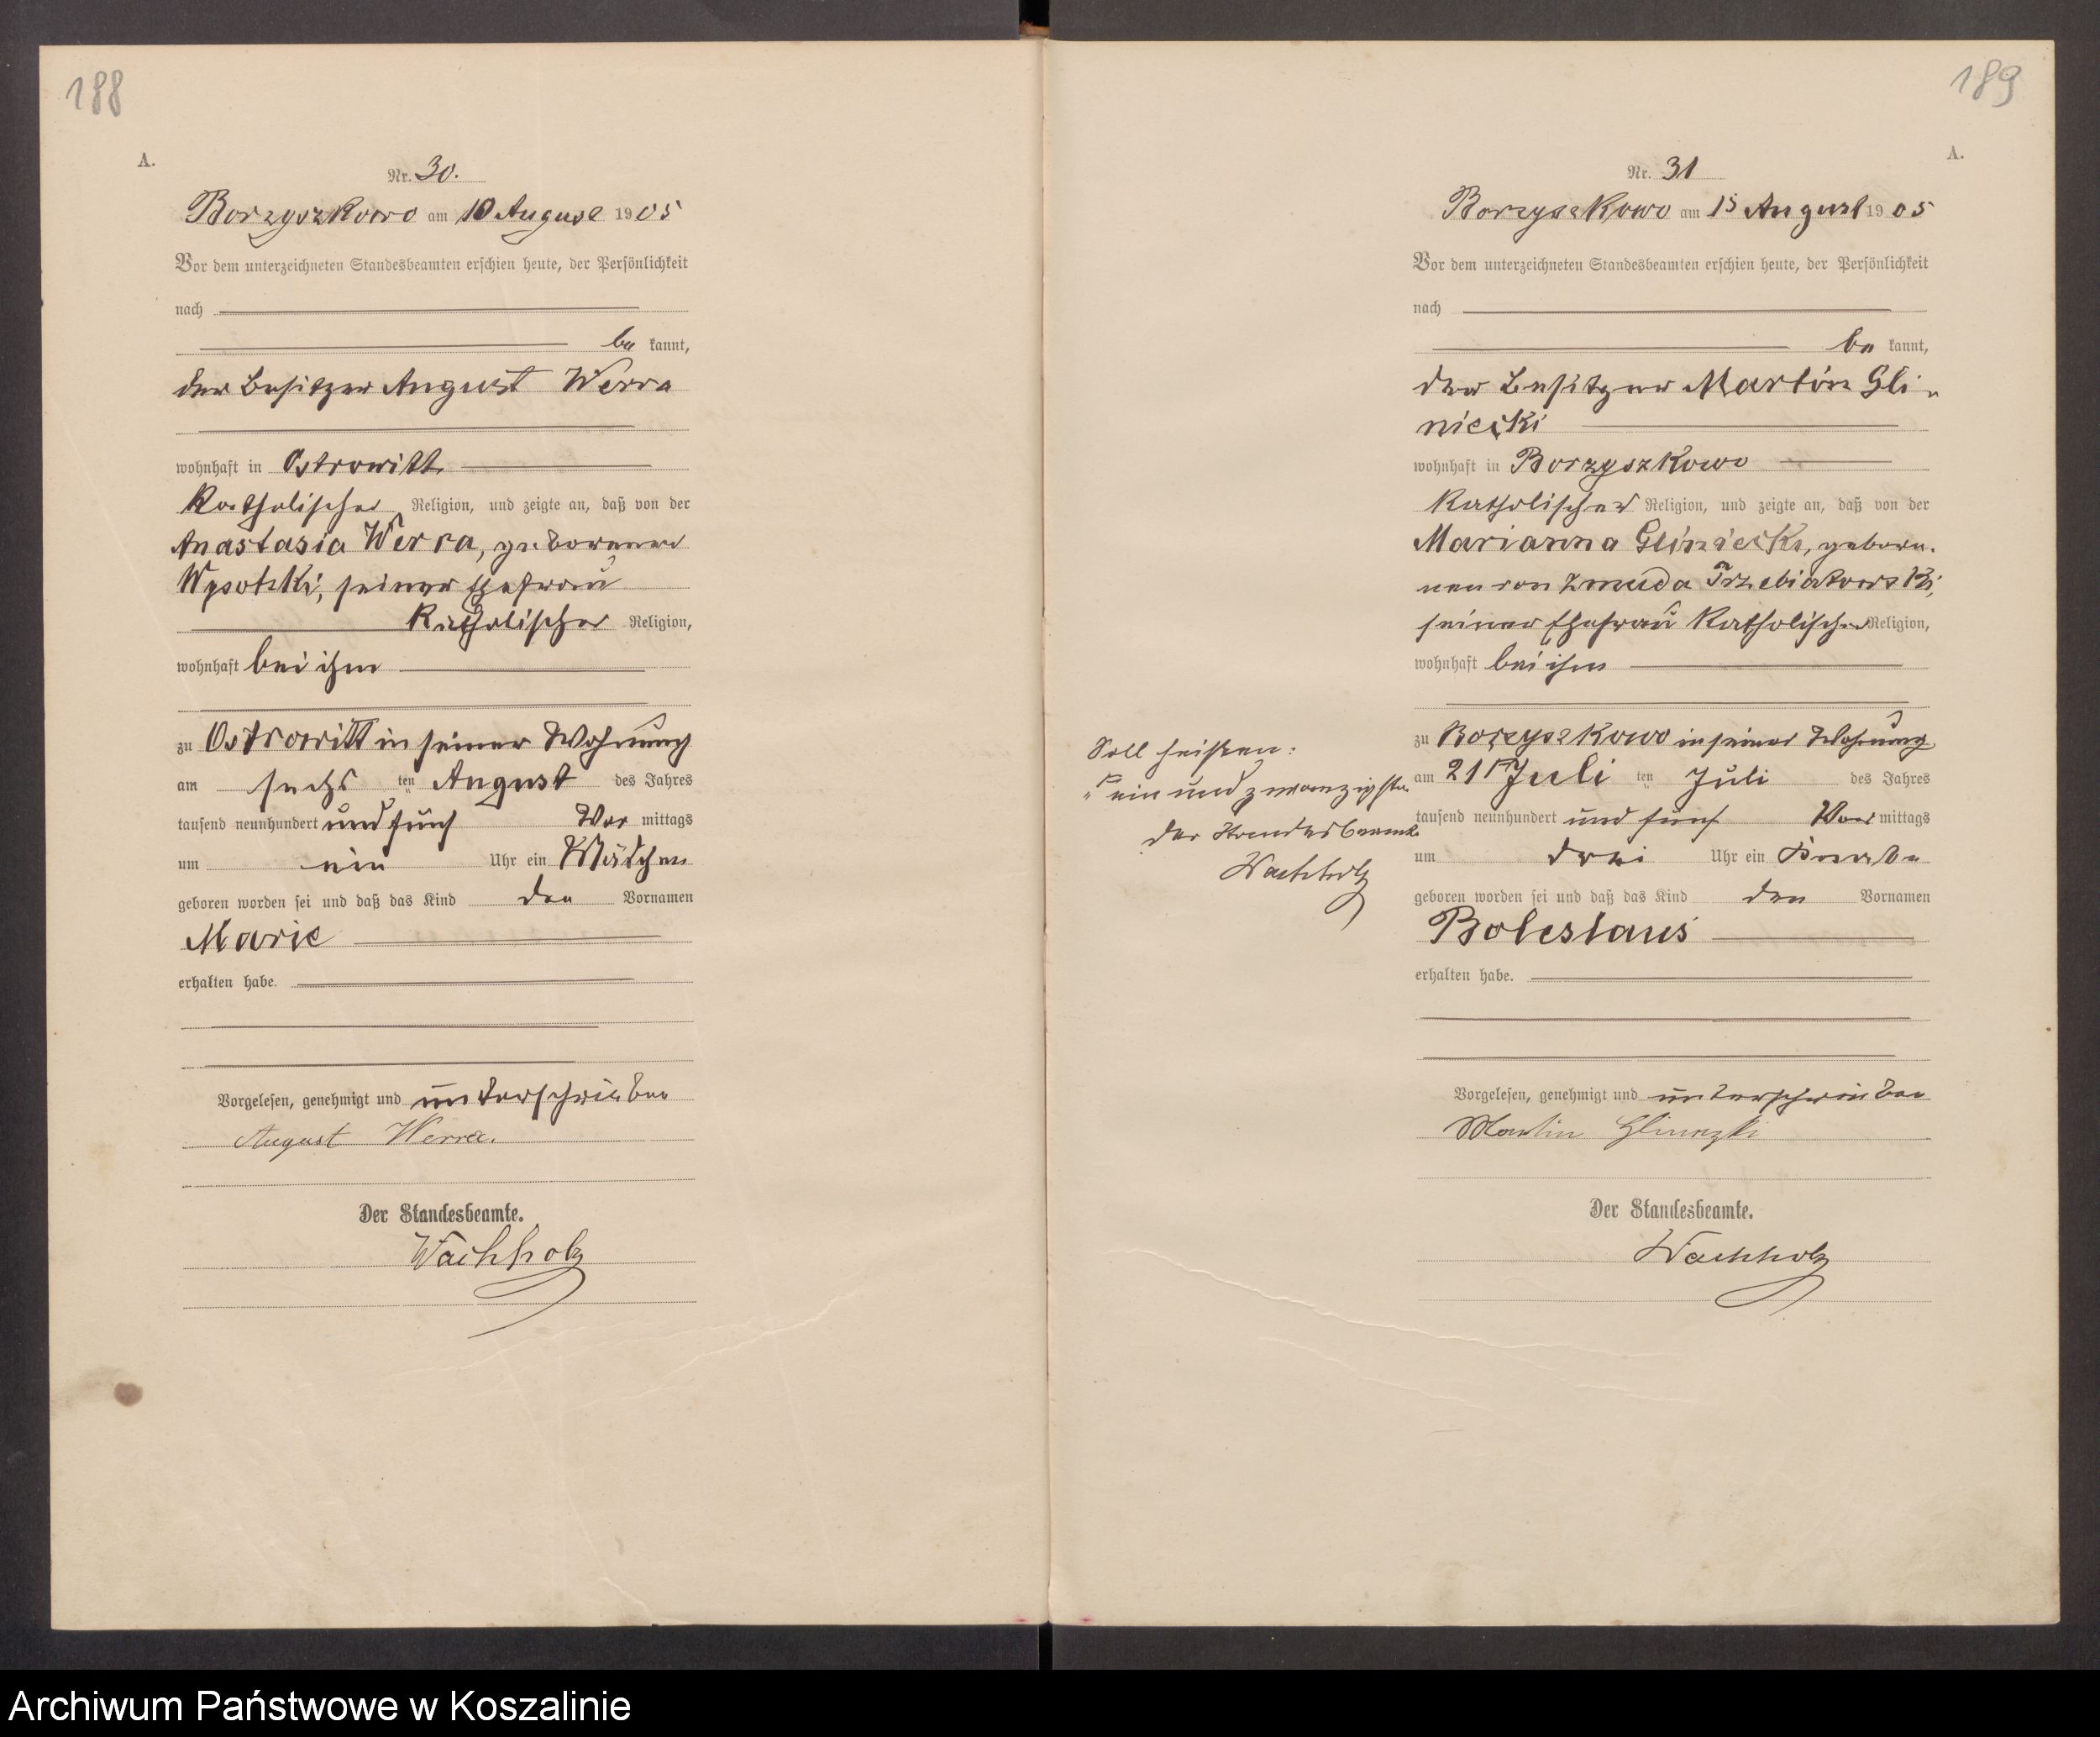 188
A.
Nr. 30.
Borzyszkowo am 10 August 1905
Vor dem unterzeichneten Standesbeamten erschien heute, der Persönlichkeit
nach
be kannt,
der Besitzer August Werra
wohnhaft in Ostrowitt
katholischer Religion, und zeigte an, daß von der
Anastasia Werra, geborenen
Wysotzki, seiner Ehefrau
katholischer Religion,
wohnhaft bei ihm
zu Ostrowitt in seiner Wohnung
am sechs ten August des Jahres
tausend neunhundert und fünf Vor mittags
um ein Uhr ein Mädchen
geboren worden sei und daß das Kind den Vornamen
Marie
erhalten habe.
Vorgelesen, genehmigt und unterschrieben
August Werra.
Der Standesbeamte.
Wachholz
189
A.
Nr. 31
Borzyszkowo am 15 August 1905
Vor dem unterzeichneten Standesbeamten erschien heute, der Persönlichkeit
nach
be kannt,
der Besitzer Martin Gli-
niecki
wohnhaft in Borzyszkowo
katholischer Religion, und zeigte an, daß von der
Marianna Gliniecki, gebore-
nen von Zmuda Trzebiatowski,
seiner Ehefrau katholischer Religion,
wohnhaft bei ihm
zu Borzyszkowo in seiner Wohnung
am 21 Juli ten Juli des Jahres
tausend neunhundert und fünf Vor mittags
um drei Uhr ein Knabe
geboren worden sei und daß das Kind den Vornamen
Boleslaus
erhalten habe.
Soll heißen:
"ein und zwanzigsten
der Standesbeamte
Wachholz
Vorgelesen, genehmigt und unterschrieben
Martin Glinezki
Der Standesbeamte.
Wachholz
Archiwum Państwowe w Koszalinie